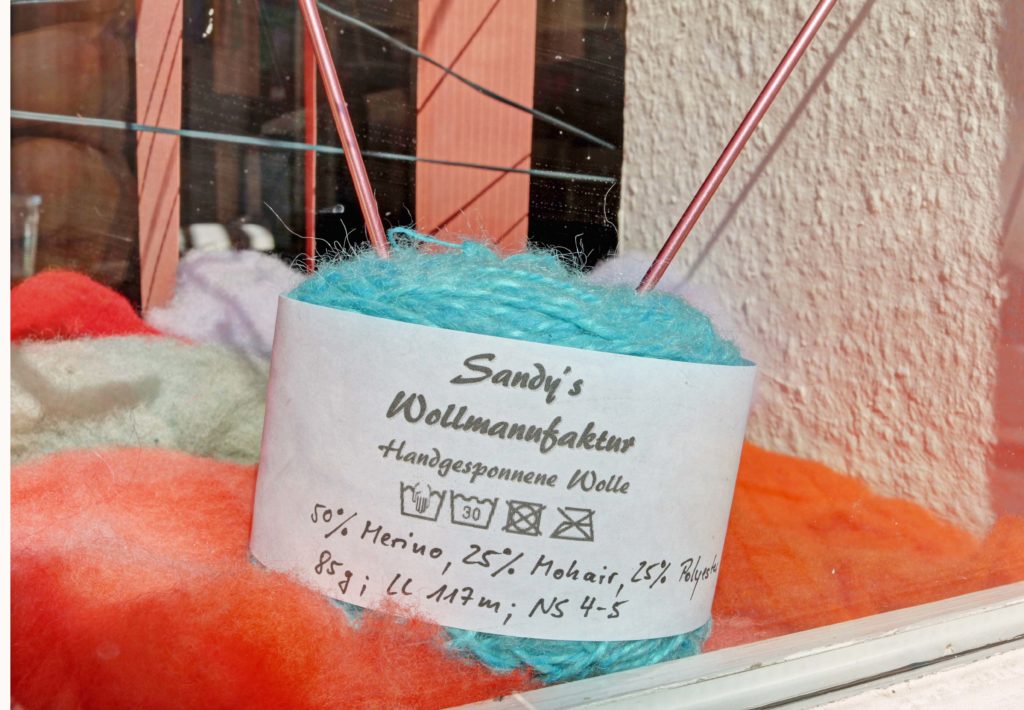 Sandy's
Wollmanufaktur
Handgesponnene Wolle
30
50% Merino, 25% Mohair, 25% Polyest
85g; LL 117m; NS 4-5